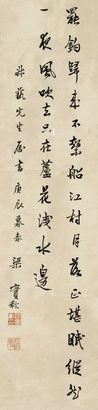 罷釣歸來不繫船江村月落正堪眠縱然
一夜風吹去只在蘆花淺水邊
先生屬書庚辰暮春 梁實秋